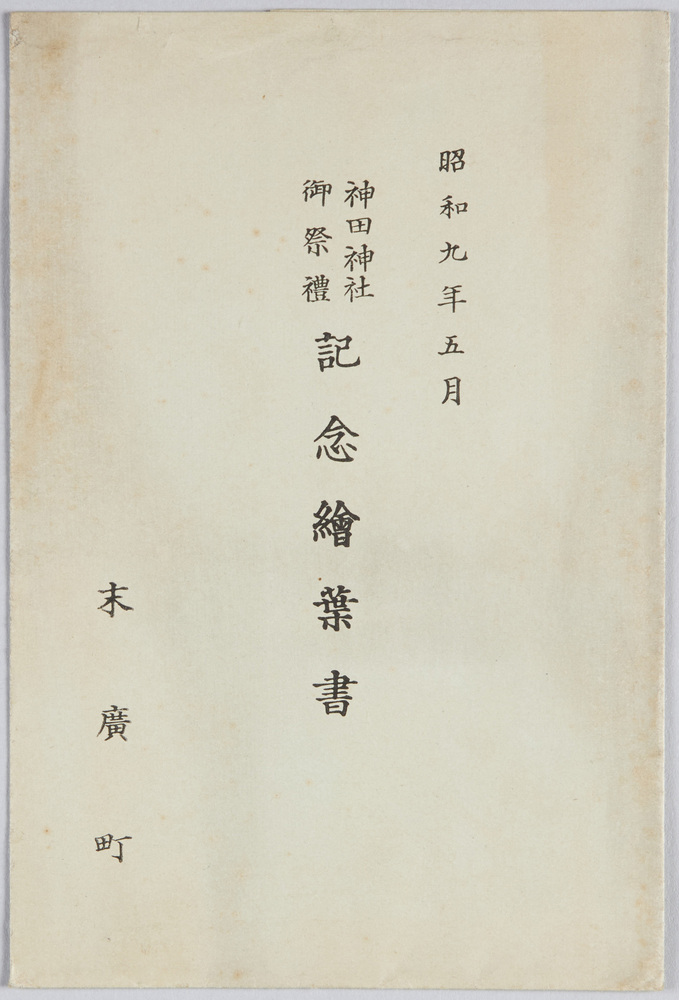 昭和九年五月
神田神社
御祭禮
記念繪葉書
末廣町